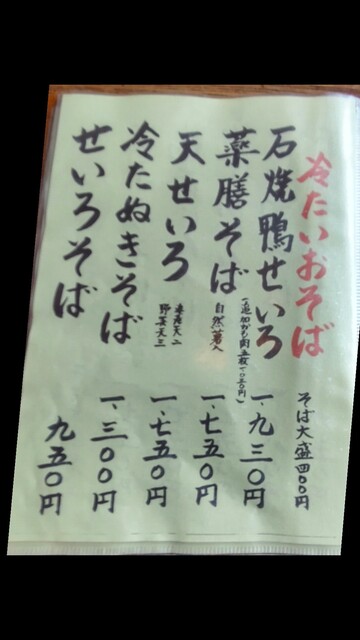 冷たいおそば
そば大盛四〇〇円
石焼鴨せいろ
一、九三〇円
薬膳そば
自然薯入
一、七五〇円
天せいろ
海老天二
野菜天三
一、七五〇円
冷たぬきそば
一、三〇〇円
せいろそば
九五〇円